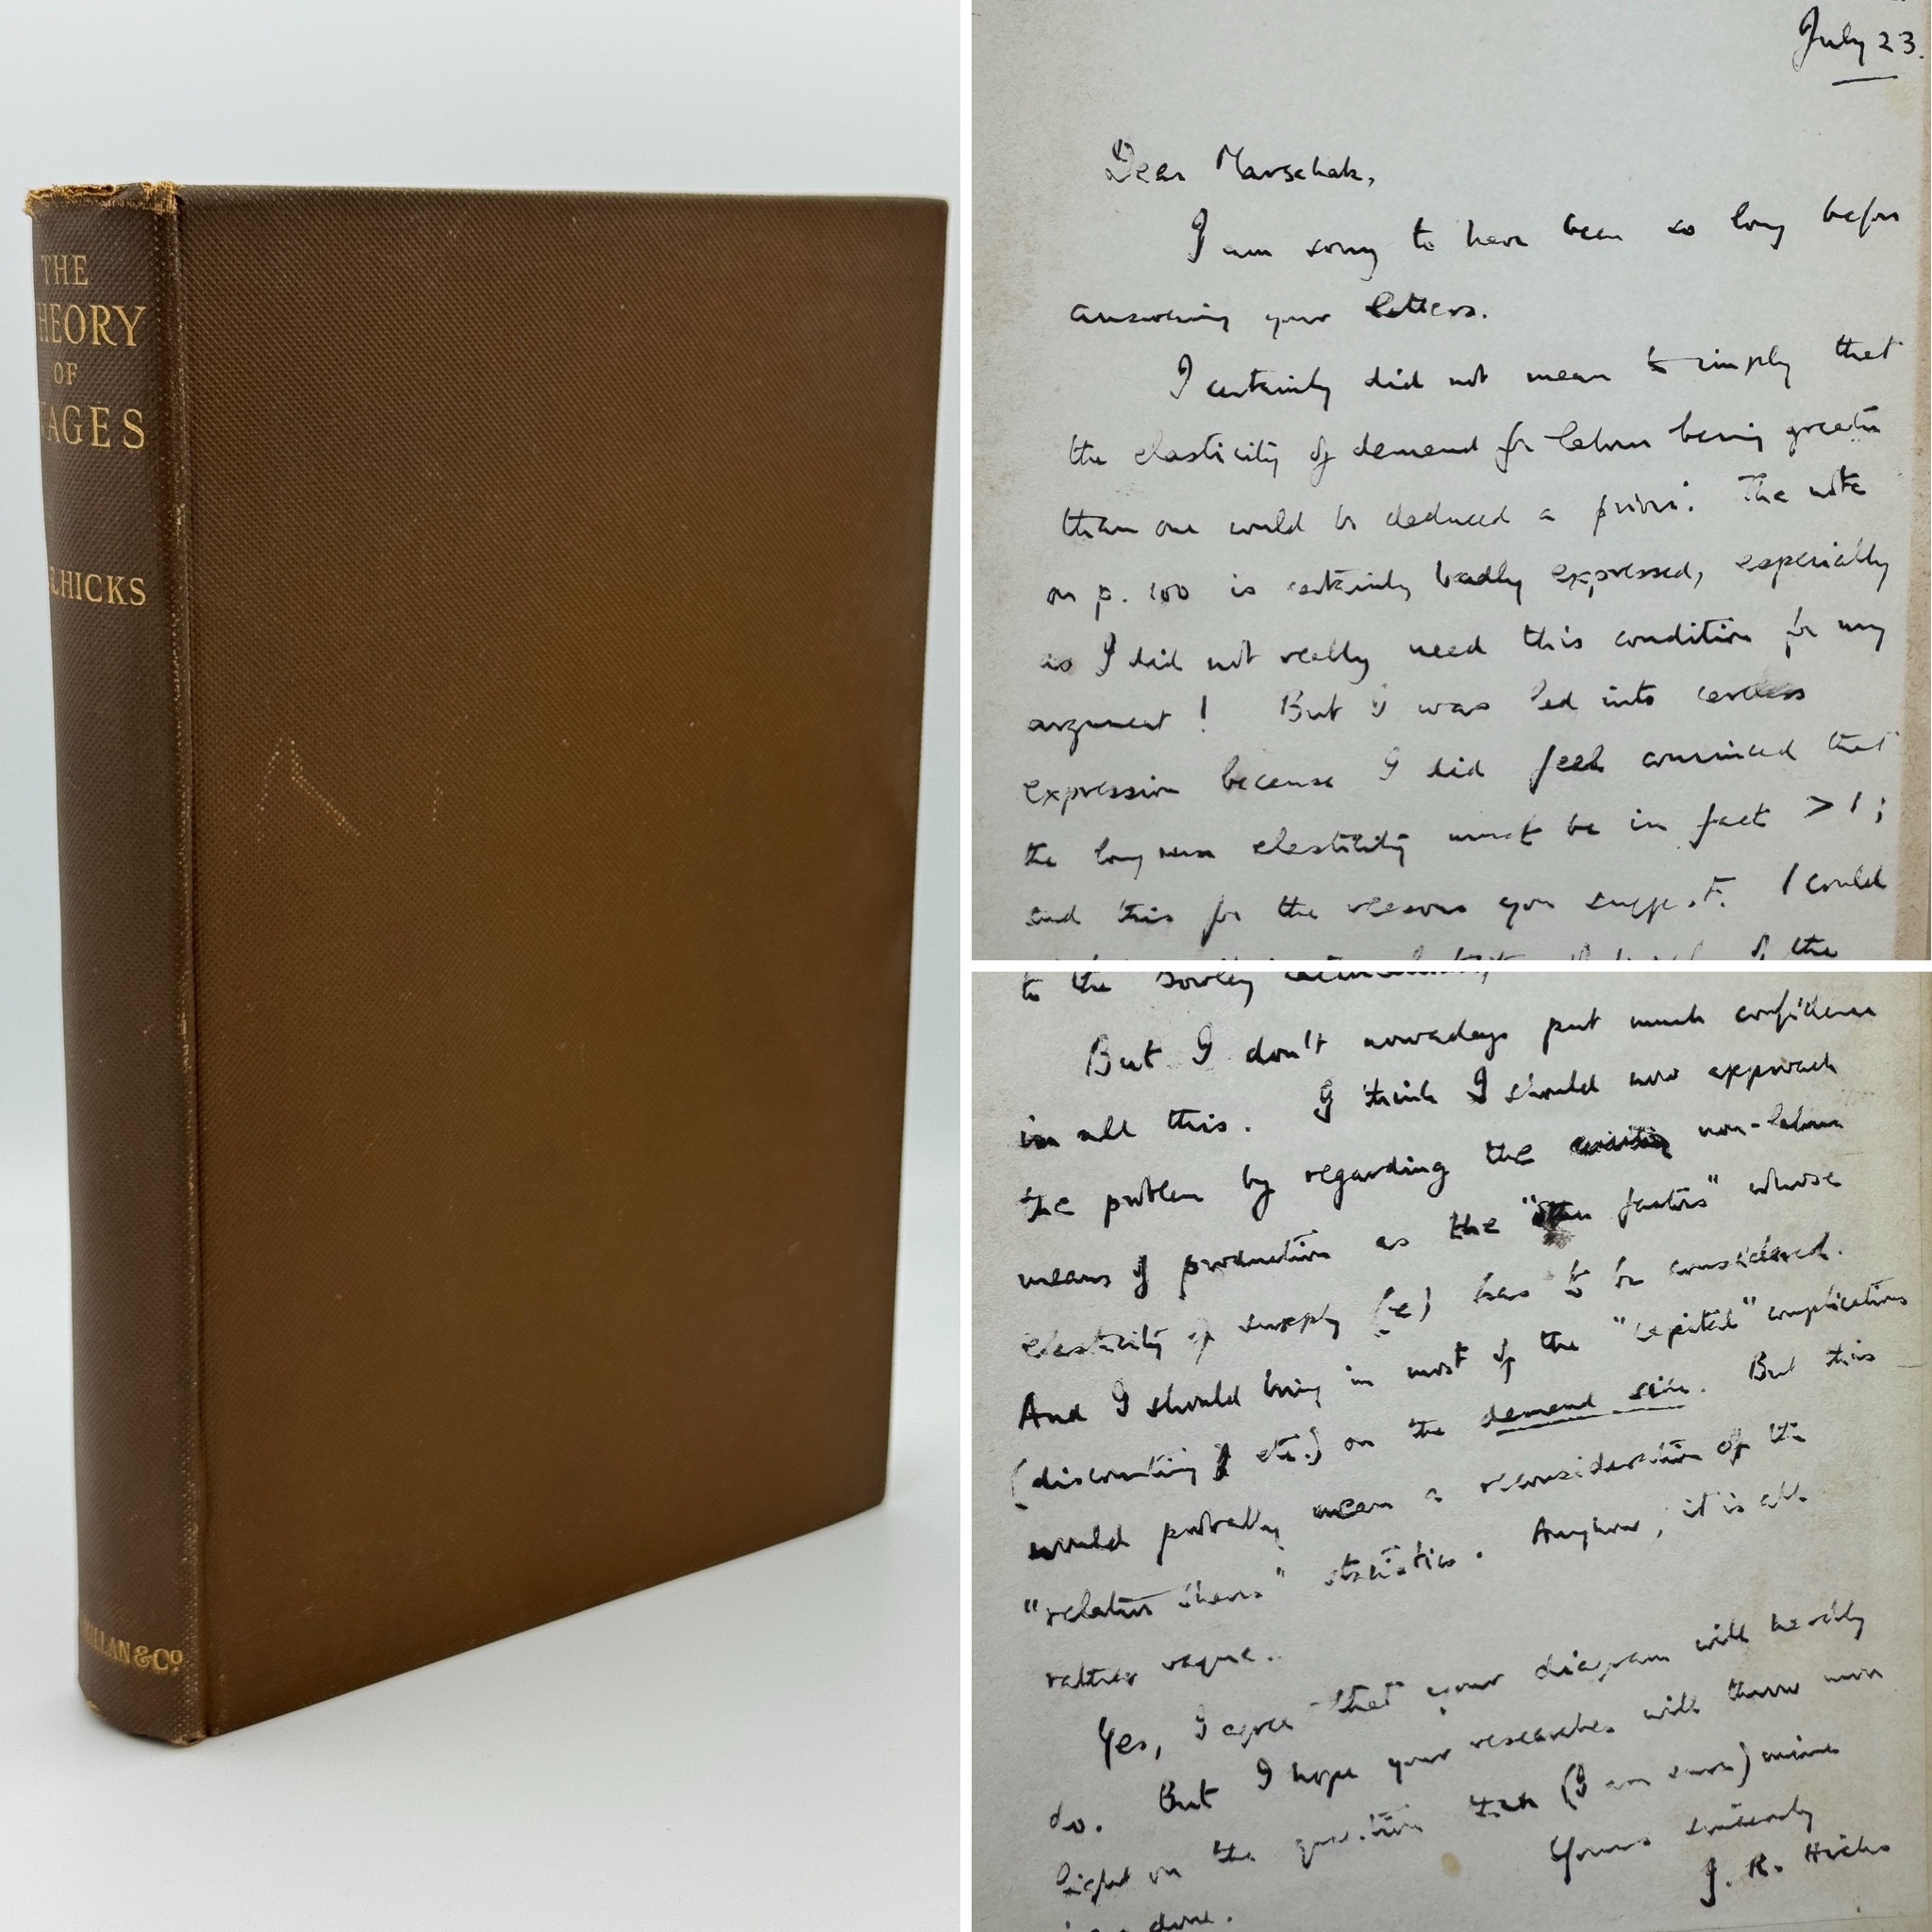 THE
HEORY
OF
AGES
R.HICKS
MILLAN & Co.
July 23.
Dear Marschak,
I am sorry to have been so long before
answering your letters.
I certainly did not mean to imply that
the elasticity of demand for labour being greater
than one could be deduced a priori. The note
on p. 100 is certainly badly expressed, especially
as I did not really need this condition for my
argument! But I was led into careless
expression because I did feel convinced that
the long run elasticity must be in fact > 1;
and this for the reasons you suggest. I could
of the
to the Bowley
But I don't nowadays put much confidence
in all this. I think I should now approach
the problem by regarding the non-labour
means of production as the "other factors" whose
elasticity of supply (e) has to be considered.
And I should bring in most of the "capital" complications
(discounting etc.) on the demand side. But this
would probably mean a reconsideration of the
"relative shares" statistics. Anyhow, it is all
rather vague.
Yes, I agree that your diagram will hardly
do. But I hope your researches will throw more
light on the question than (I am sure) mine
done.
Yours sincerely
J. R. Hicks